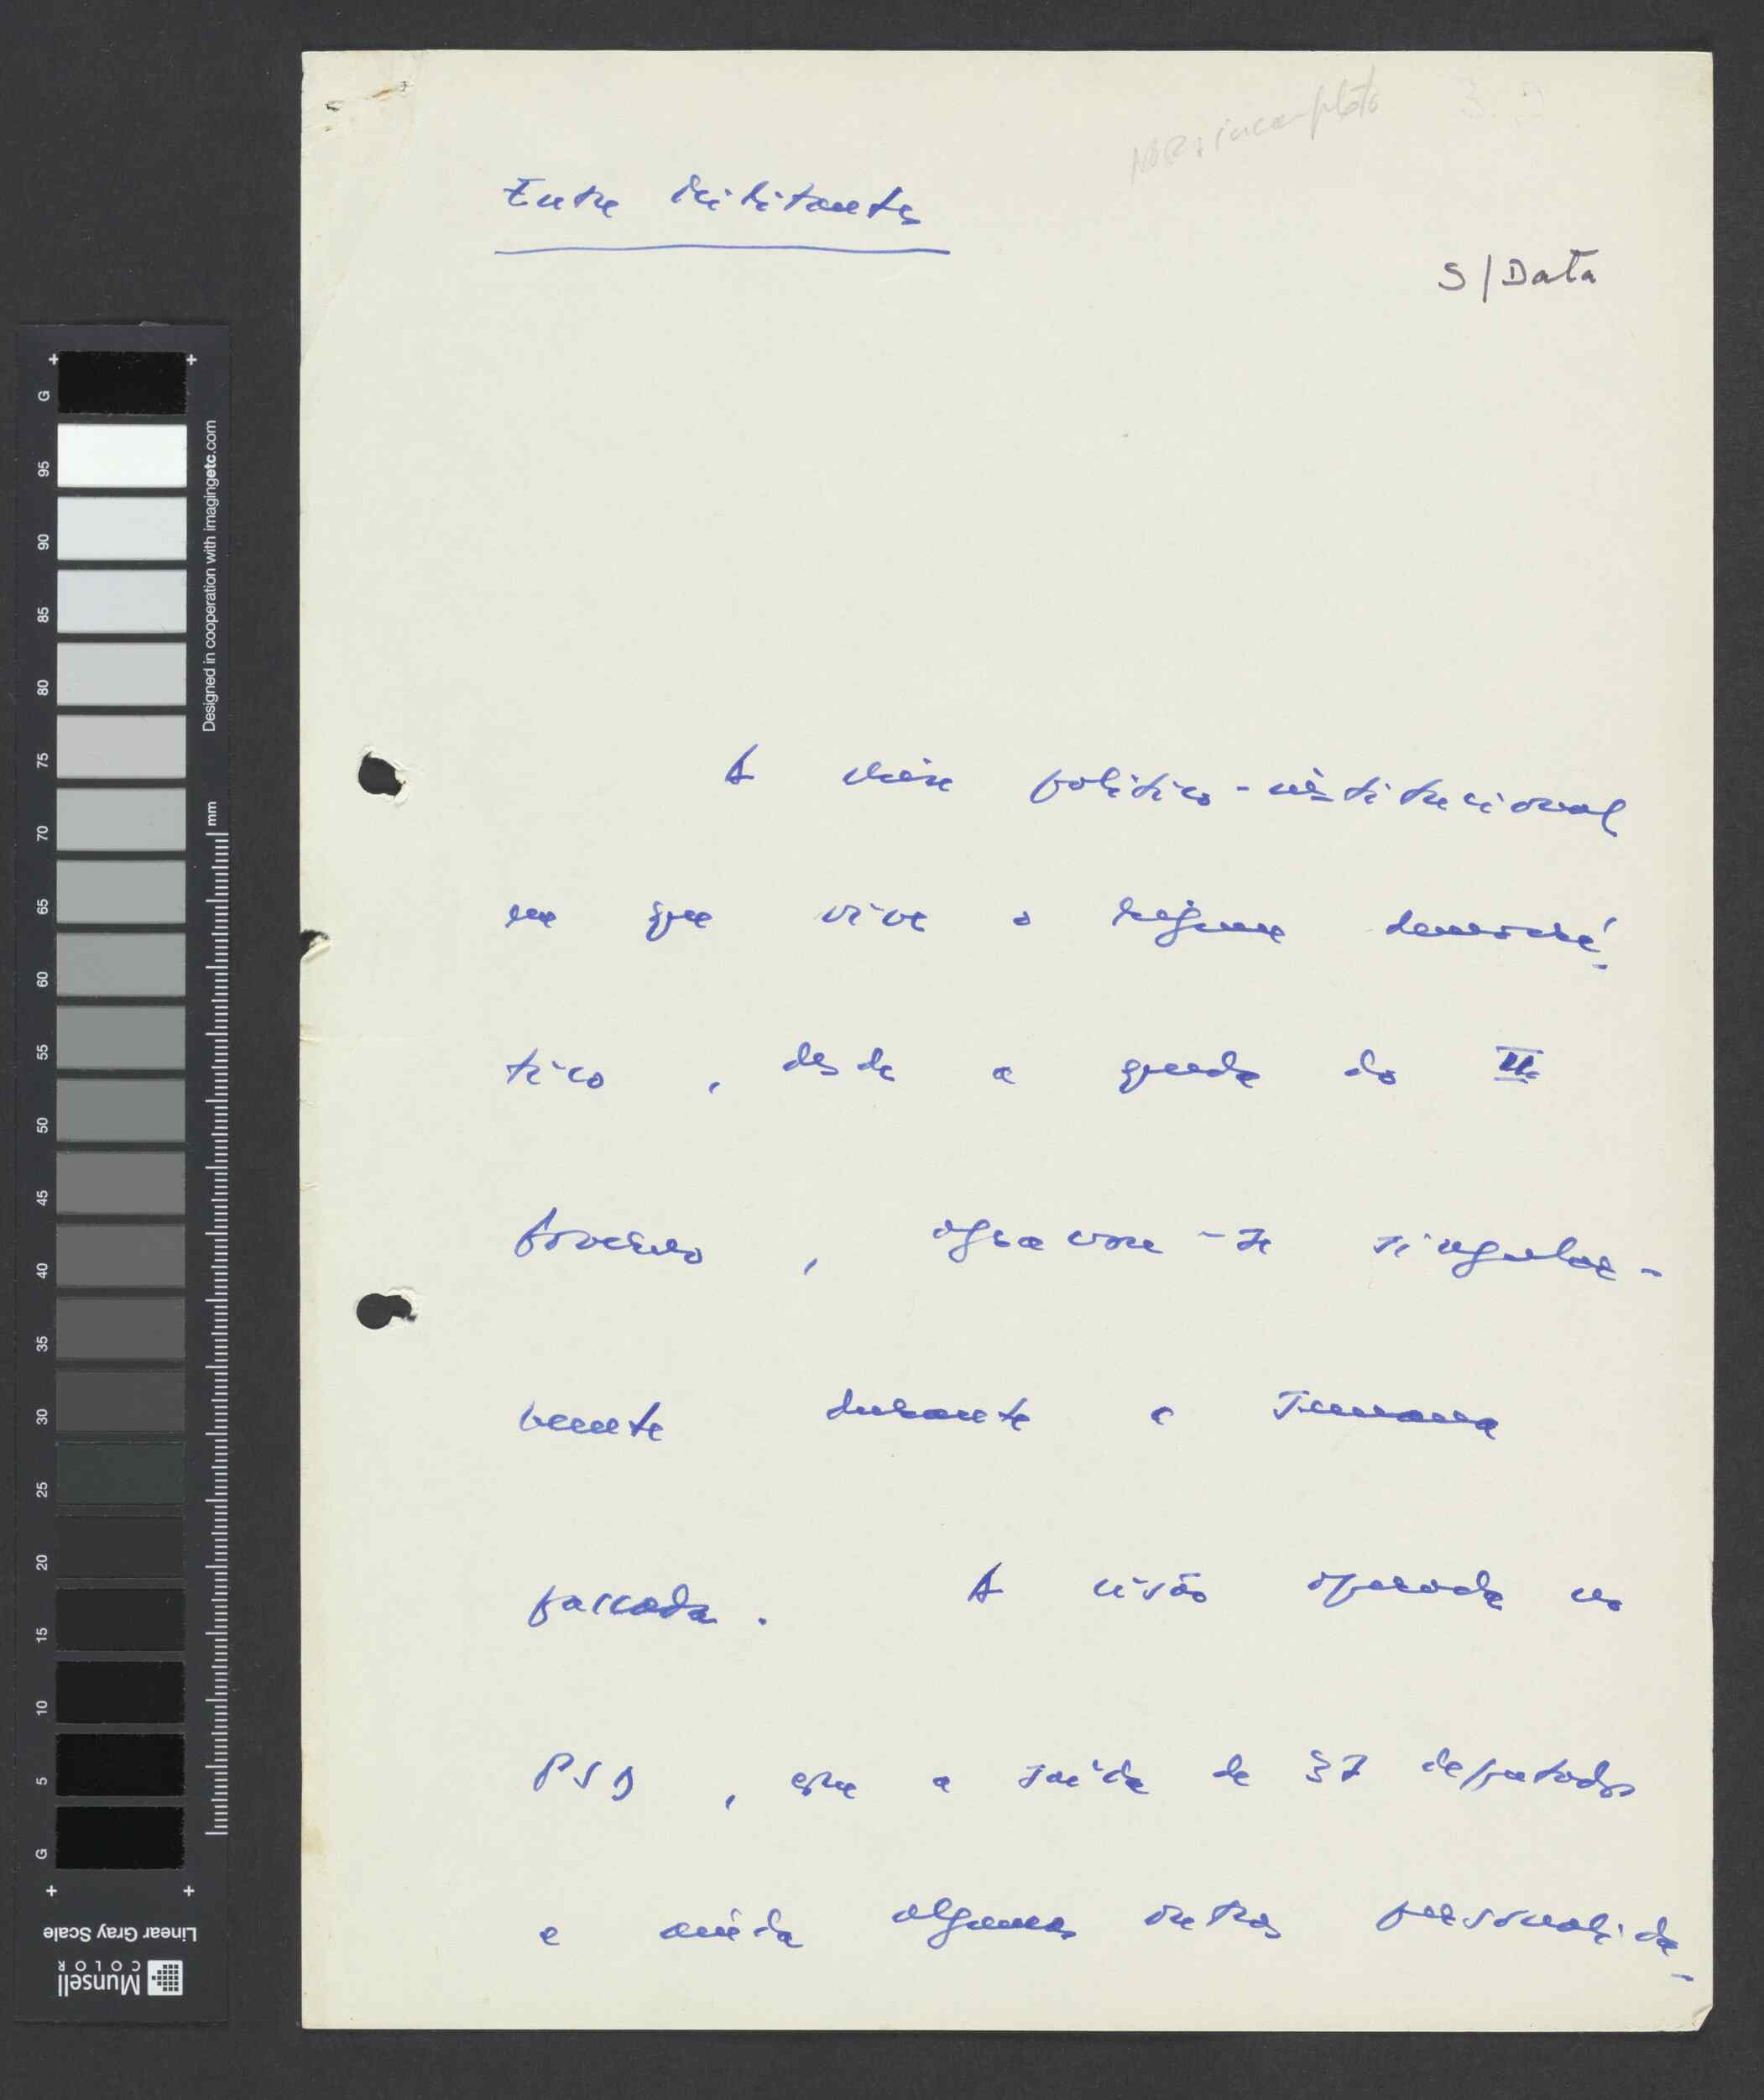 incompleto
Entre Militantes
S/Data
A crise político-institucional
em que vive o regime democrá-
tico, desde a queda do II
Governo, agravou-se singular-
mente durante a semana
passada. A cisão operada no
PSD, com a saída de 37 deputados
e ainda algumas outras personalida-
Designed in cooperation with imagingetc.com
mm
G 95 90 85 80 75 70 65 60 55 50 45 40 35 30 25 20 15 10 5 G
Linear Gray Scale
Munsell
COLOR